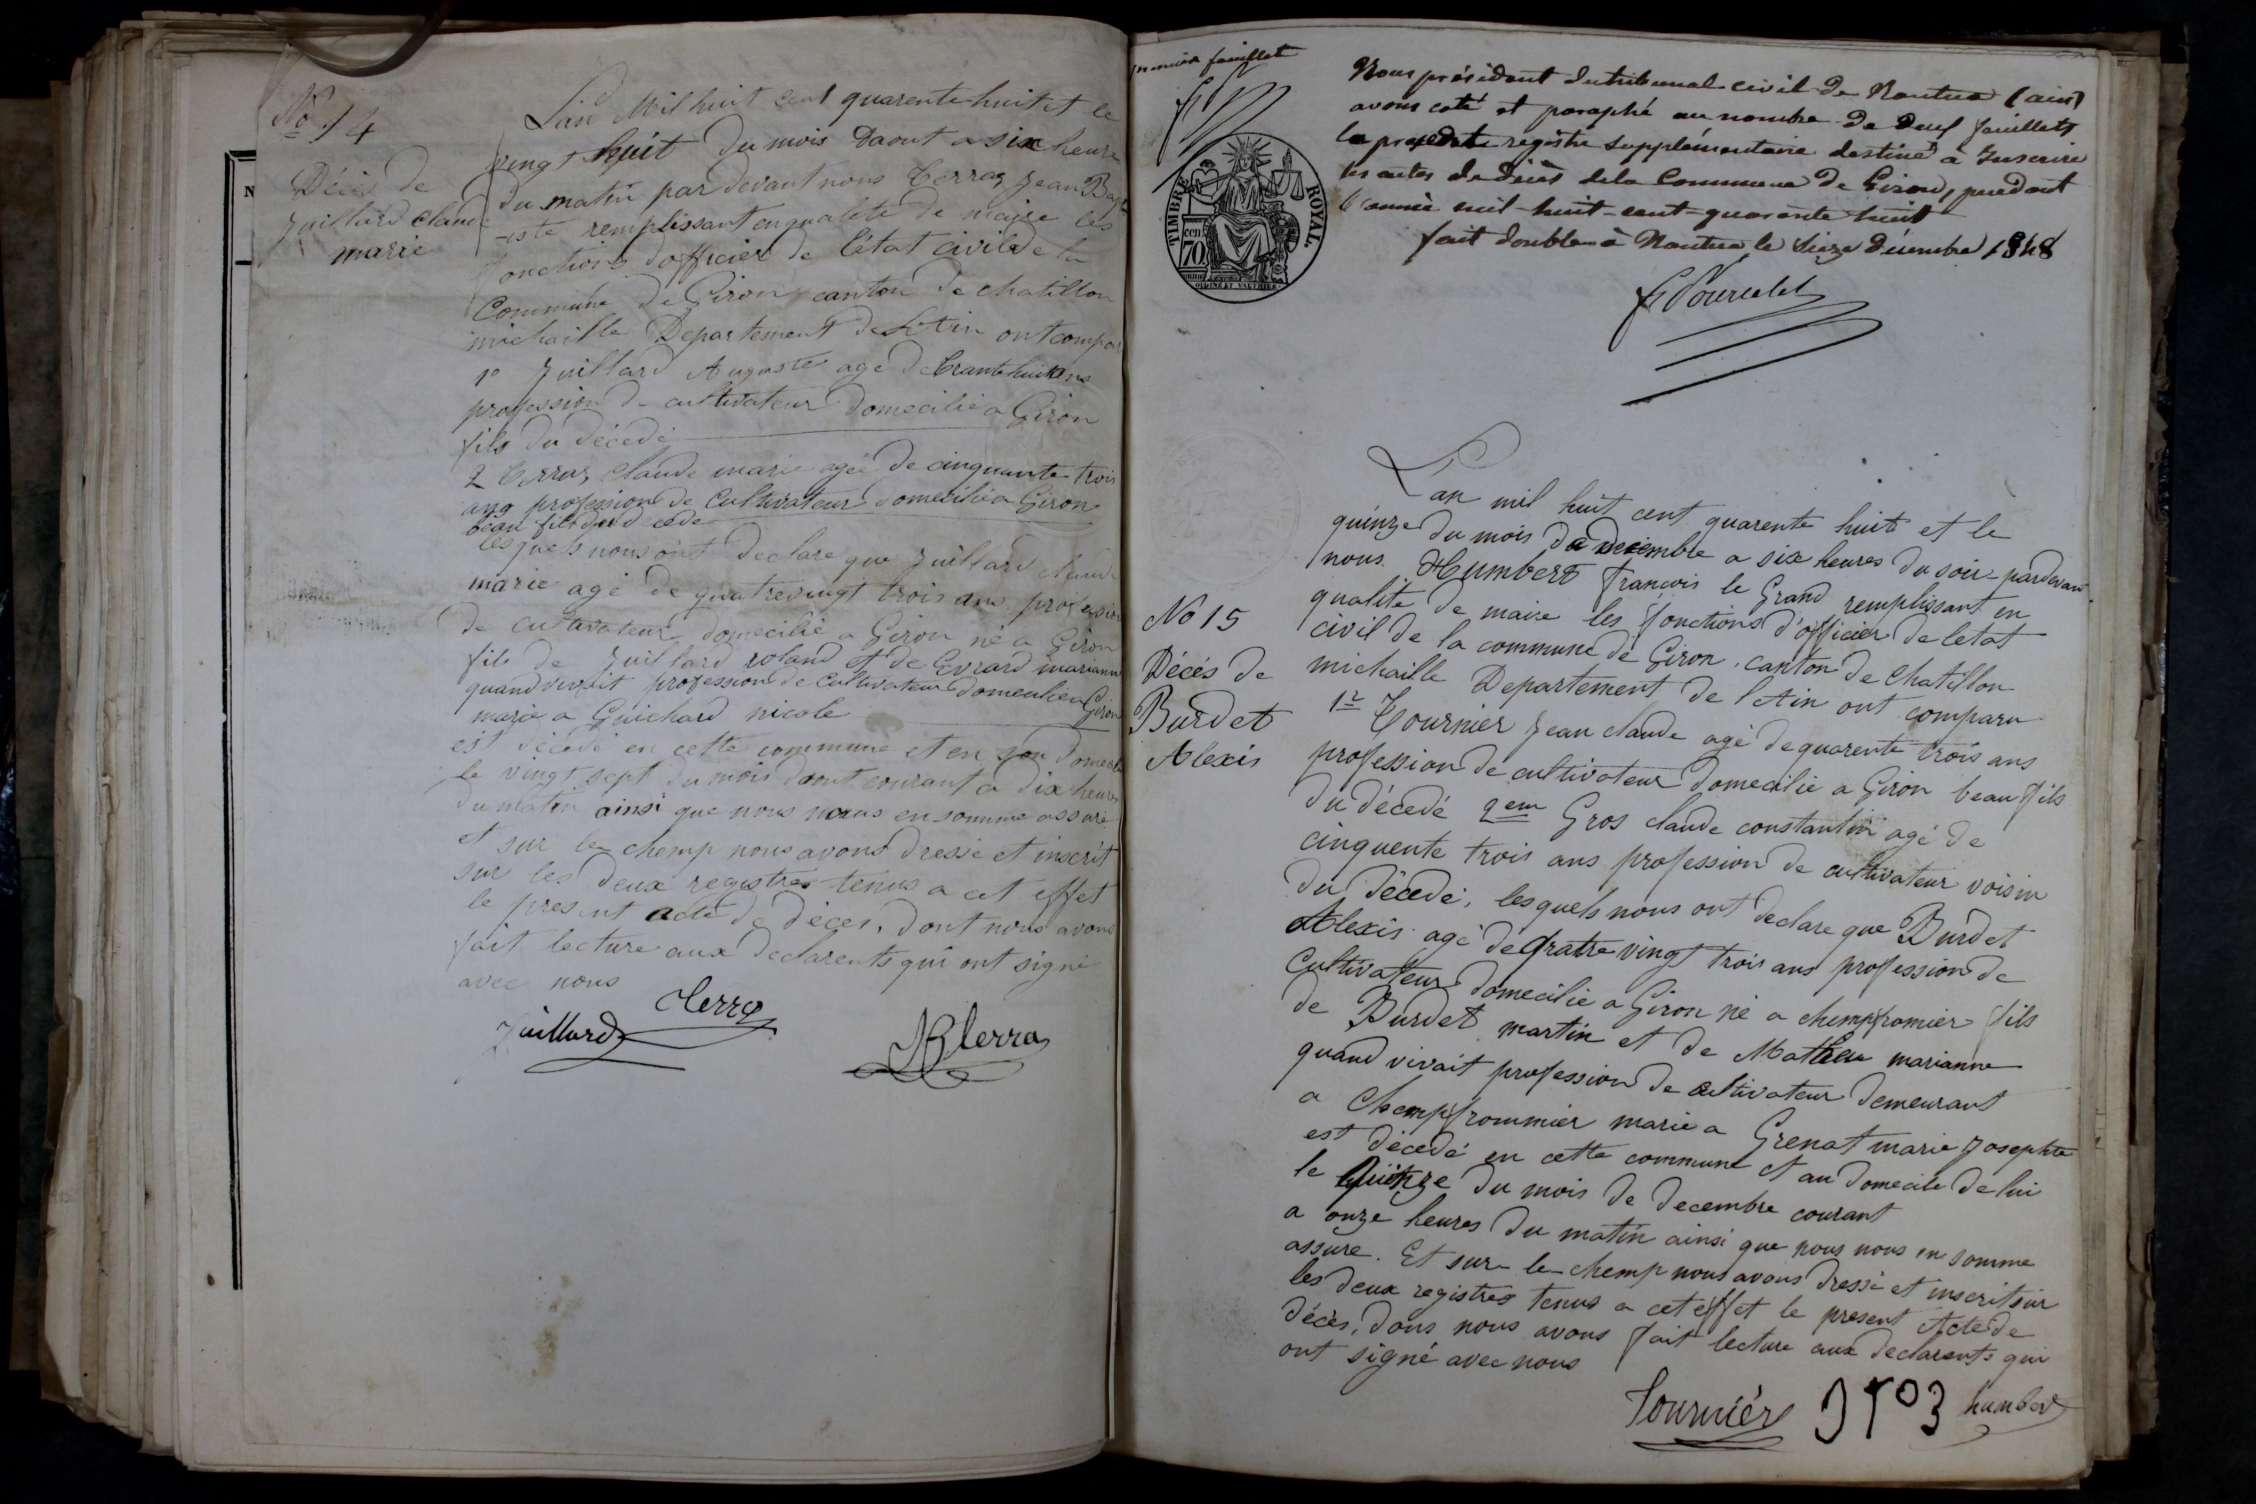 No 14
Décès de
Juillard Claude
marie
L'an Mil huit cent quarente huit et le
vingt huit du mois Daout a six heure
du matin par devant nous Cerraz Jean Bapt
-iste remplissant en qualite de maire les
fonctions d'officier de l'état civil de la
Commune de Giron canton de chatillon
michaille Departement de L'Ain ont compar
1o Juillard Auguste agé de trante huit ans
profession de cultivateur Domecilié a Giron
fils du décedé
2 Cerraz Claude marie agé de cinquante trois
ans profession de Cultivateur domecilié a Giron
beau fils du décédé
lesquels nous ont declare que Juillard Claude
marie agé de quatrevingt trois ans profession
de cultivateur domecilié a Giron né a Giron
fils de Juillard roland et de Evrard marianne
quand vivait profession de cultivateur domecilié a Giron
marié a Guichard nicole
est décédé en cette commune et en son Domecile
le vingt sept du mois daout courant a dix heures
du matin ainsi que nous nous en somme assuré
et sur le chemp nous avons dressé et inscrit
sur les deux registres tenus a cet effet
le present acte de décès, dont nous avons
fait lecture aux declarents qui ont signé
avec nous
Cerraz
Juillard
JB Cerraz
premier feuillet
Nous président du tribunal civil de Nantua (ain)
avons coté et paraphé au nombre de deux feuillets
le présent registre supplémentaire destiné à Inscrire
les actes de Décès de la Commune de Giron, pendant
l'année mil-huit-cent-quarante huit
fait double à Nantua le seize Décembre 1848
TIMBRE ROYAL
cen
70
No 15
Décés de
Burdet
Alexis
L'an mil huit cent quarente huit et le
quinze du mois de decembre a six heures du soir pardevant
nous Humbert françois le Grand remplissant en
qualité de maire les fonctions d'officier de letat
civil de la commune de Giron, canton de Chatillon
michaille Departement de l'Ain ont comparu
1r Tournier Jean claude agé de quarente trois ans
profession de cultivateur Domecilié a Giron beau fils
du décedé 2em Gros claude constantin agé de
cinquente trois ans profession de cultivateur voisin
du décedé, lesquels nous ont declare que Burdet
Alexis agé de quatre vingt trois ans profession de
Cultivateur domecilié a Giron né a chempfromier fils
de Burdet martin et de Mathieu marianne
quand vivait profession de cultivateur demeurant
a Chempfrommier marié a Grenat marie Josephte
est décedé en cette commune et au domecile de lui
le Quinze du mois de decembre courant
a onze heures du matin ainsi que nous nous en somme
assure. Et sur le chemp nous avons dressé et inscrit sur
les deux registres tenus a cet effet le present Acte de
décès, dons nous avons fait lecture aux declarents qui
ont signé avec nous
Tournier
humbert